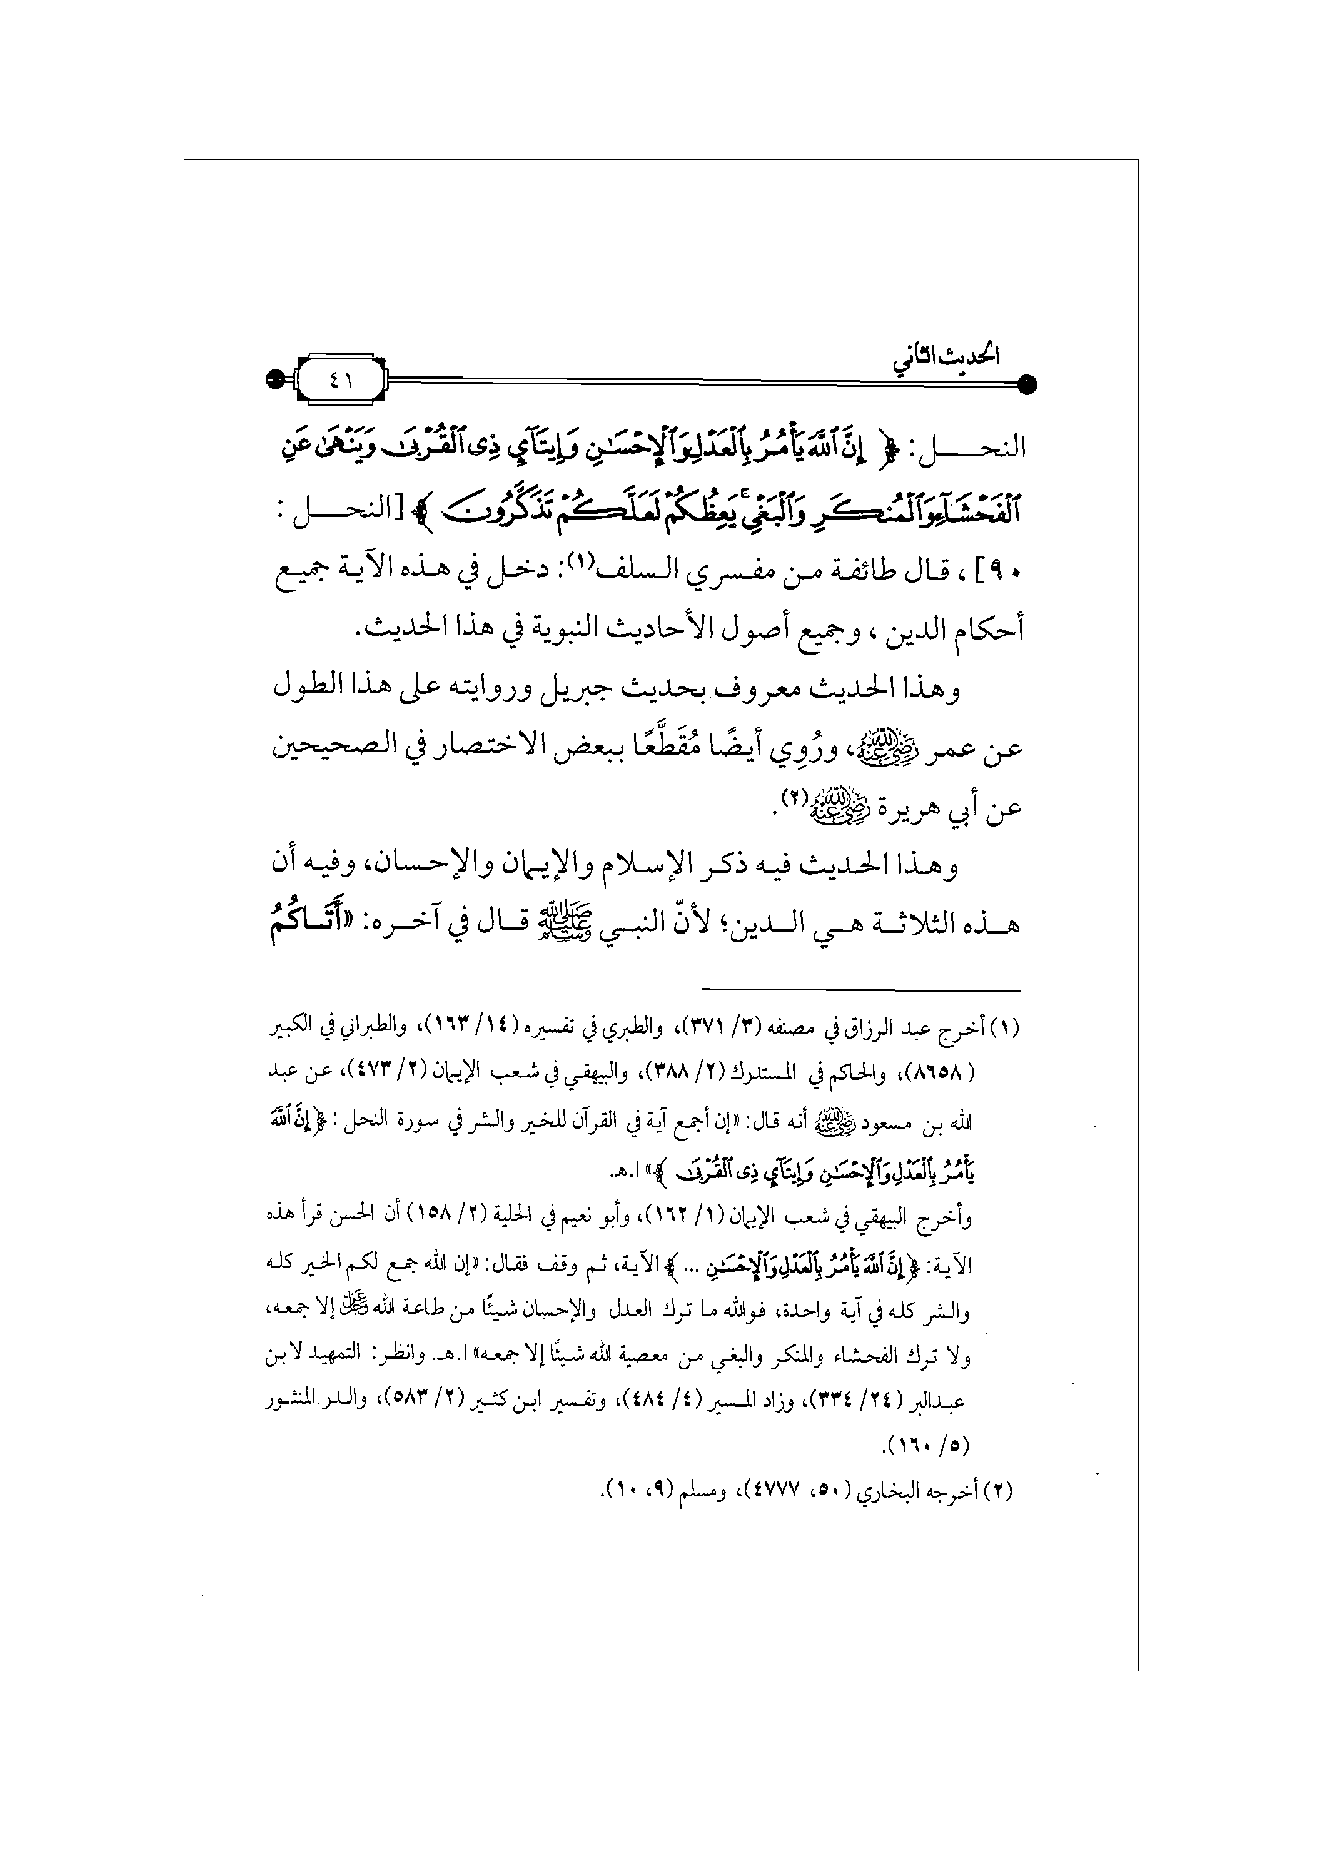 الحديث الثاني
٤١
النحل: ﴿ إِنَّ ٱللَّهَ يَأْمُرُ بِٱلْعَدْلِ وَٱلْإِحْسَـٰنِ وَإِيتَآيِٕ ذِى ٱلْقُرْبَىٰ وَيَنْهَىٰ عَنِ
ٱلْفَحْشَآءِ وَٱلْمُنكَرِ وَٱلْبَغْيِ ۚ يَعِظُكُمْ لَعَلَّكُمْ تَذَكَّرُونَ ﴾ [النحل:
٩٠]، قال طائفة من مفسري السلف(١): دخل في هذه الآية جميع
أحكام الدين، وجميع أصول الأحاديث النبوية في هذا الحديث.
وهذا الحديث معروف بحديث جبريل وروايته على هذا الطول
عن عمر رضي الله عنه، ورُوِي أيضًا مُقَطَّعًا ببعض الاختصار في الصحيحين
عن أبي هريرة رضي الله عنه(٢).
وهذا الحديث فيه ذكر الإسلام والإيمان والإحسان، وفيه أن
هذه الثلاثة هي الدين؛ لأنّ النبي ﷺ قال في آخره: «أَتَاكُمُ
(١) أخرج عبد الرزاق في مصنفه (٣/ ٣٧١)، والطبري في تفسيره (١٤/ ١٦٣)، والطبراني في الكبير
(٨٦٥٨)، والحاكم في المستدرك (٢/ ٣٨٨)، والبيهقي في شعب الإيمان (٢/ ٤٧٣)، عن عبد
الله بن مسعود رضي الله عنه أنه قال: «إن أجمع آية في القرآن للخير والشر في سورة النحل: ﴿إِنَّ ٱللَّهَ
يَأْمُرُ بِٱلْعَدْلِ وَٱلْإِحْسَـٰنِ وَإِيتَآيِٕ ذِى ٱلْقُرْبَىٰ ﴾» ا.هـ.
وأخرج البيهقي في شعب الإيمان (١/ ١٦٢)، وأبو نعيم في الحلية (٢/ ١٥٨) أن الحسن قرأ هذه
الآية: ﴿إِنَّ ٱللَّهَ يَأْمُرُ بِٱلْعَدْلِ وَٱلْإِحْسَـٰنِ ... ﴾ الآية، ثم وقف فقال: «إن الله جمع لكم الخير كله
والشر كله في آية واحدة، فوالله ما ترك العدل والإحسان شيئًا من طاعة الله ﷻ إلا جمعه،
ولا ترك الفحشاء والمنكر والبغي من معصية الله شيئًا إلا جمعه» ا.هـ. وانظر: التمهيد لابن
عبدالبر (٢٤/ ٣٣٤)، وزاد المسير (٤/ ٤٨٤)، وتفسير ابن كثير (٢/ ٥٨٣)، والدر المنثور
(٥/ ١٦٠).
(٢) أخرجه البخاري (٥٠، ٤٧٧٧)، ومسلم (٩، ١٠).